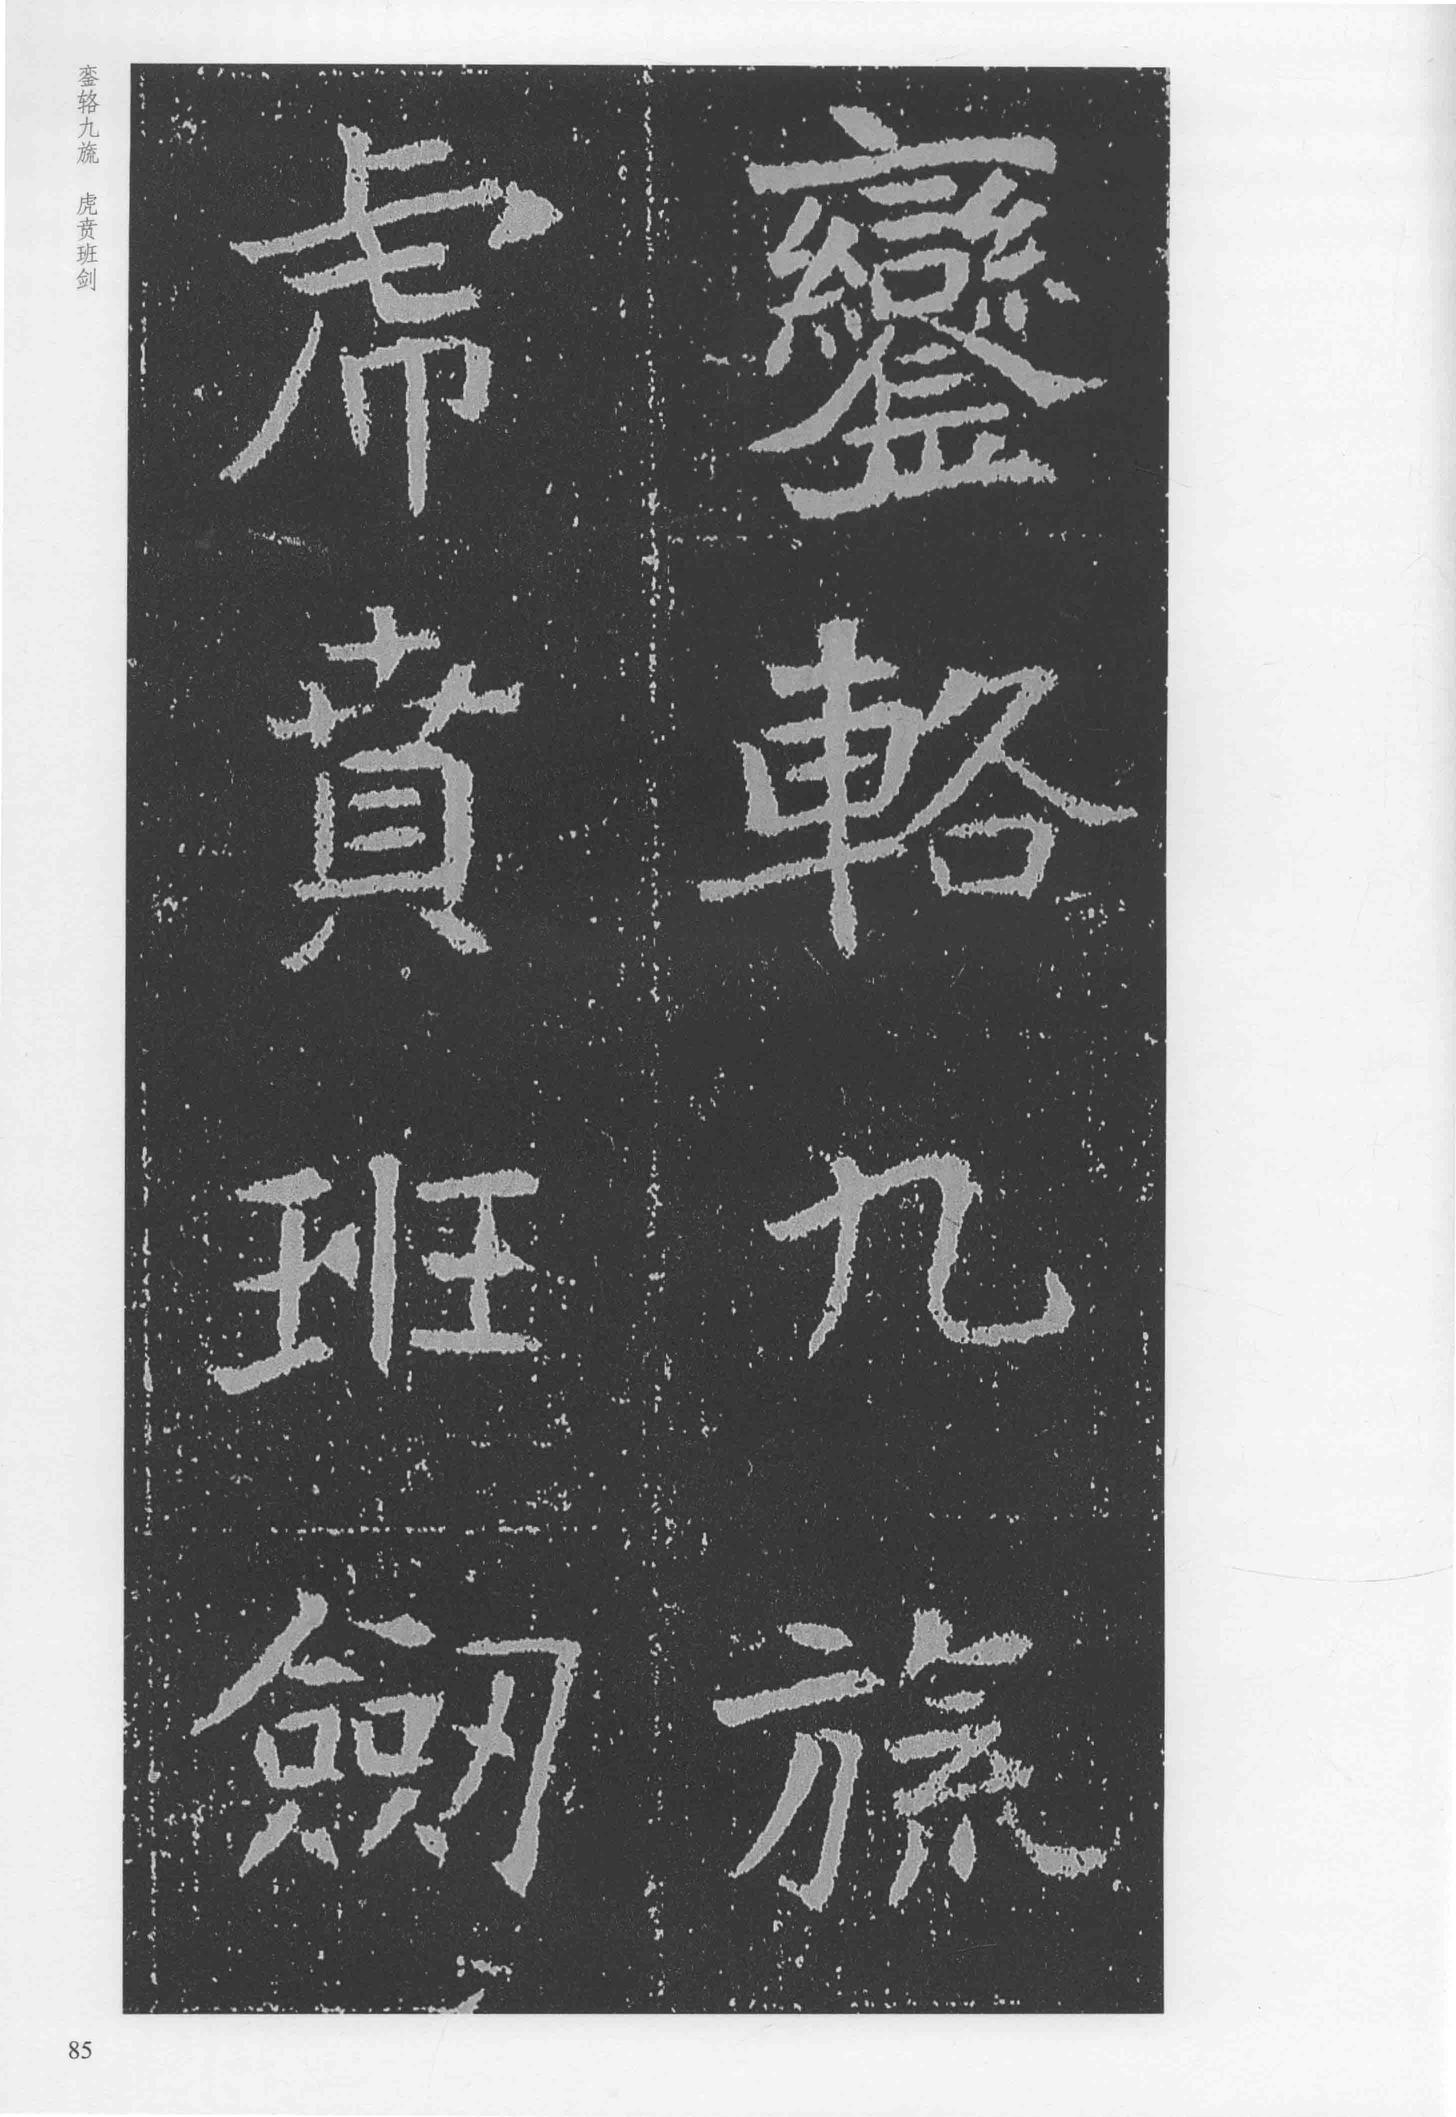 鑾輅九旒
虎賁班劒
銮辂九旒 虎贲班剑
85